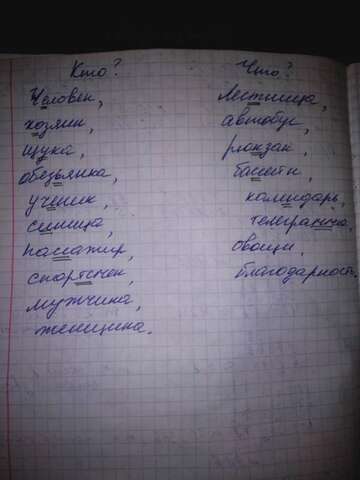 Кто? Что?
Человек, Лестница,
хозяин, автобус,
щука, рюкзак,
обезьянка, бассейн,
ученик, календарь,
синица, телеграмма,
пассажир, овощи,
спортсмен, благодарность.
мужчина,
женщина.